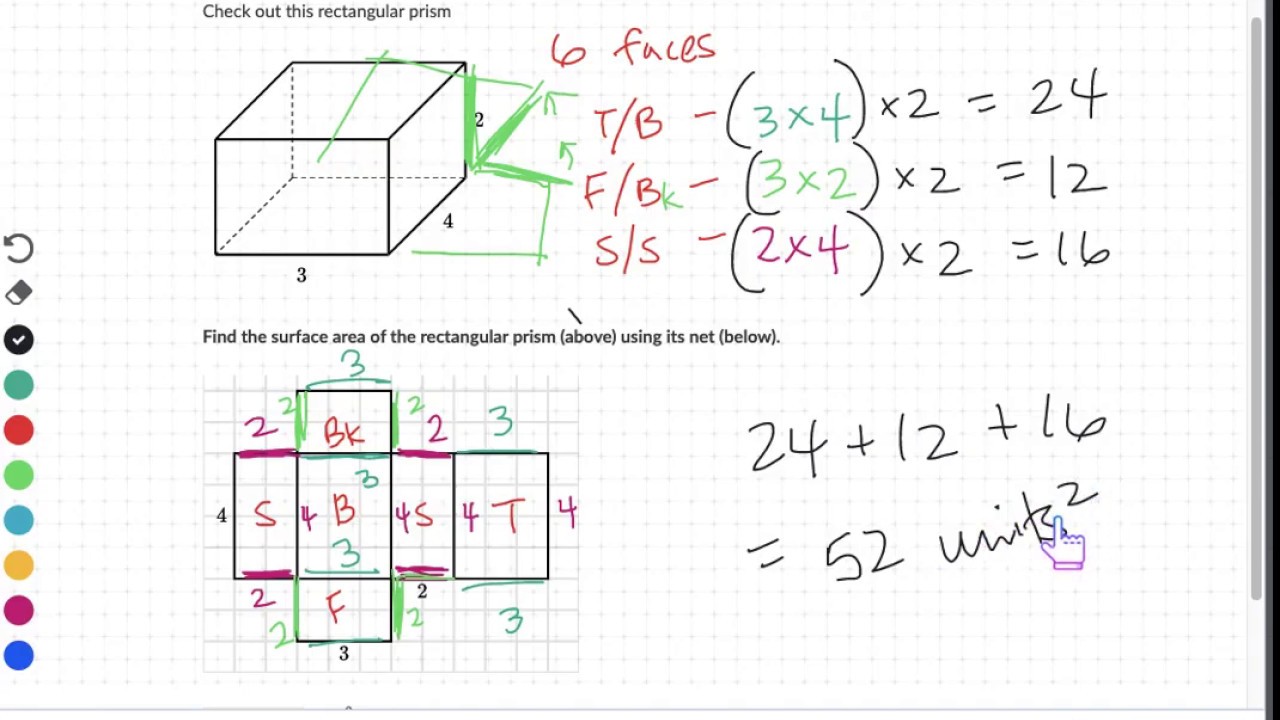 Check out this rectangular prism
6 faces
2
4
3
T/B - (3×4) ×2 = 24
F/Bk - (3×2) ×2 = 12
S/S - (2×4) ×2 = 16
Find the surface area of the rectangular prism (above) using its net (below).
3
2 2 Bk 2 2 3
3
4 S 4 B 4 S 4 T 4
3
2 F 2 3
2 2
3
24 + 12 + 16
= 52 units²